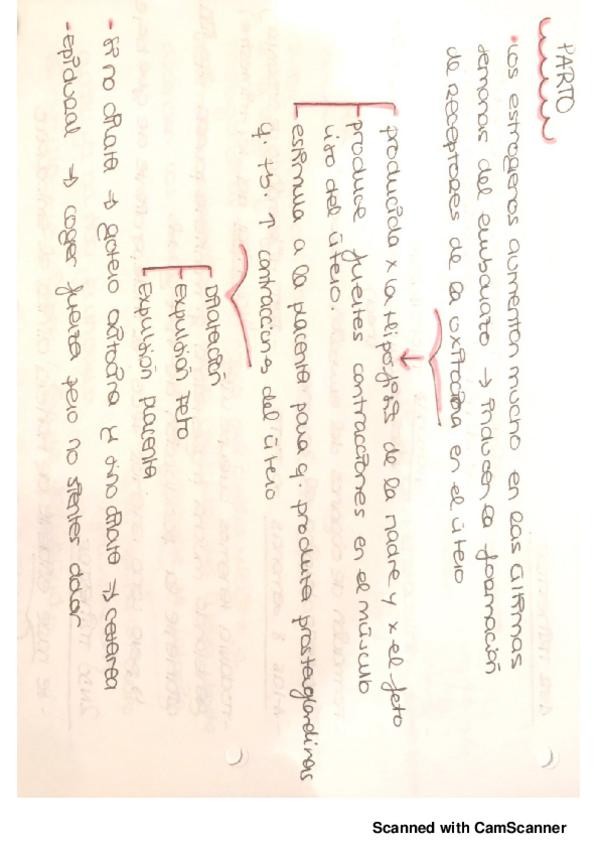 PARTO
• Los estrógenos aumentan mucho en las últimas
semanas del embarazo → inducen la formación
de receptores de la oxitocina en el útero
producida x la Hipófisis de la madre y x el feto
produce fuertes contracciones en el músculo
liso del útero.
estimula a la placenta para q. produzca prostaglandinas
q. tb. ↑ contracciones del útero
Dilatación
Expulsión Feto
Expulsión placenta
- Si no dilata → goteo oxitocina y sino dilata → cesárea
- Epidural → coger fuerza pero no sientes dolor
Scanned with CamScanner